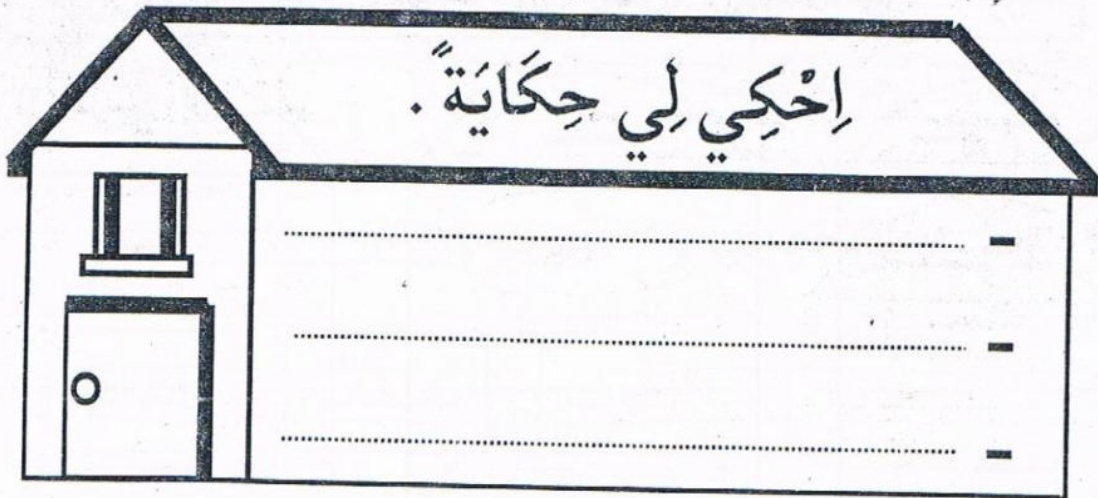 اِحْكِي لِي حِكَايَةً .